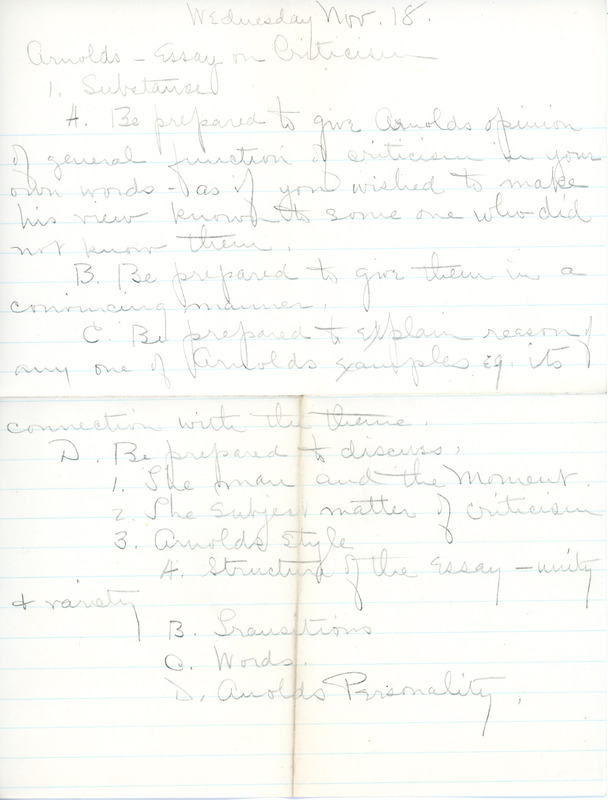 Wednesday Nov. 18.
Arnolds - Essay on Criticism
1. Substance
A. Be prepared to give Arnolds opinion
of general function of criticism in your
own words - as if you wished to make
his view known to some one who did
not know them.
B. Be prepared to give them in a
convincing manner.
C. Be prepared to explain reason of
any one of Arnolds examples eg. its
connection with the theme.
D. Be prepared to discuss,
1. The man and the Moment.
2. The Subject matter of criticism
3. Arnolds Style
A. Structure of the Essay - unity
+ variety
B. Transitions
C. Words.
D. Anolds Personality.